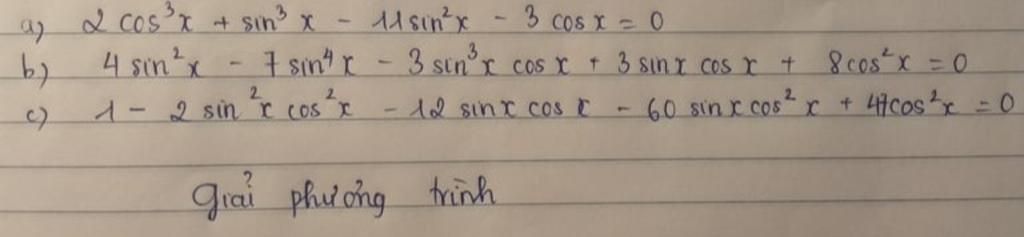 a) 2 cos³x + sin³x - 11 sin²x - 3 cos x = 0
b) 4 sin²x - 7 sin⁴x - 3 sin³x cos x + 3 sin x cos x + 8 cos²x = 0
c) 1 - 2 sin²x cos²x - 12 sin x cos x - 60 sin x cos²x + 47 cos²x = 0
Giải phương trình